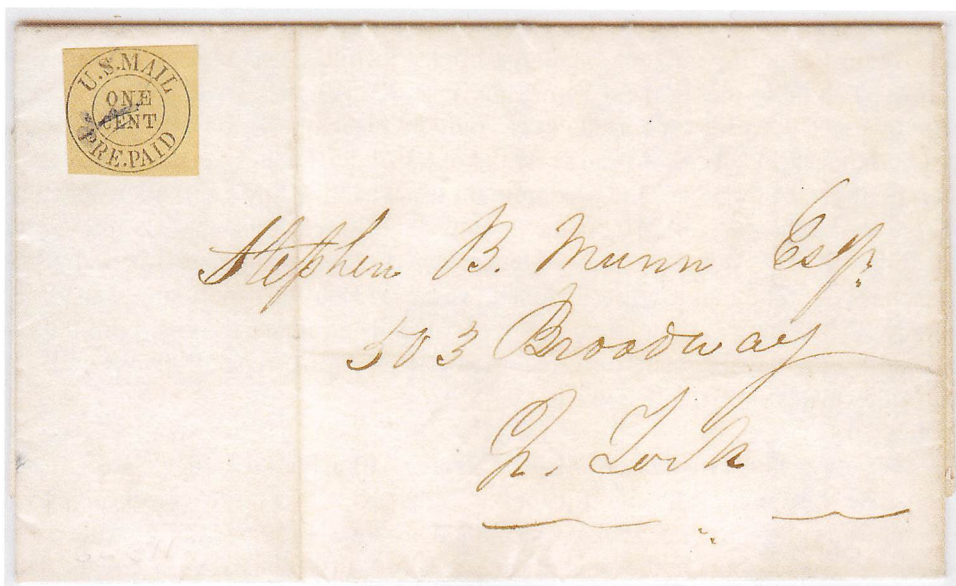 U.S.MAIL
ONE
CENT
PRE.PAID
Stephen B. Munn Esqr.
503 Broadway
N. York